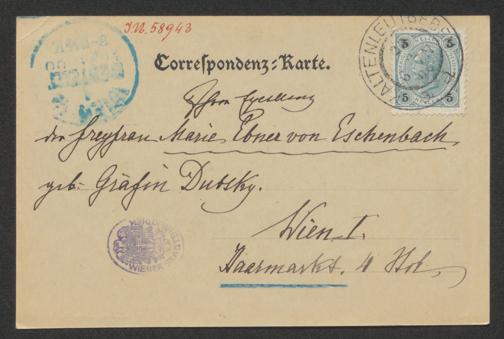 I.N. 58943
Correspondenz-Karte.
Ihrer Exzellenz
der Freyfrau Marie Ebner von Eschenbach
geb: Gräfin Dubsky.
Wien I.
Haarmarkt. 4 Hof.
KALTENLEUTGEBEN
5 5
WIENER